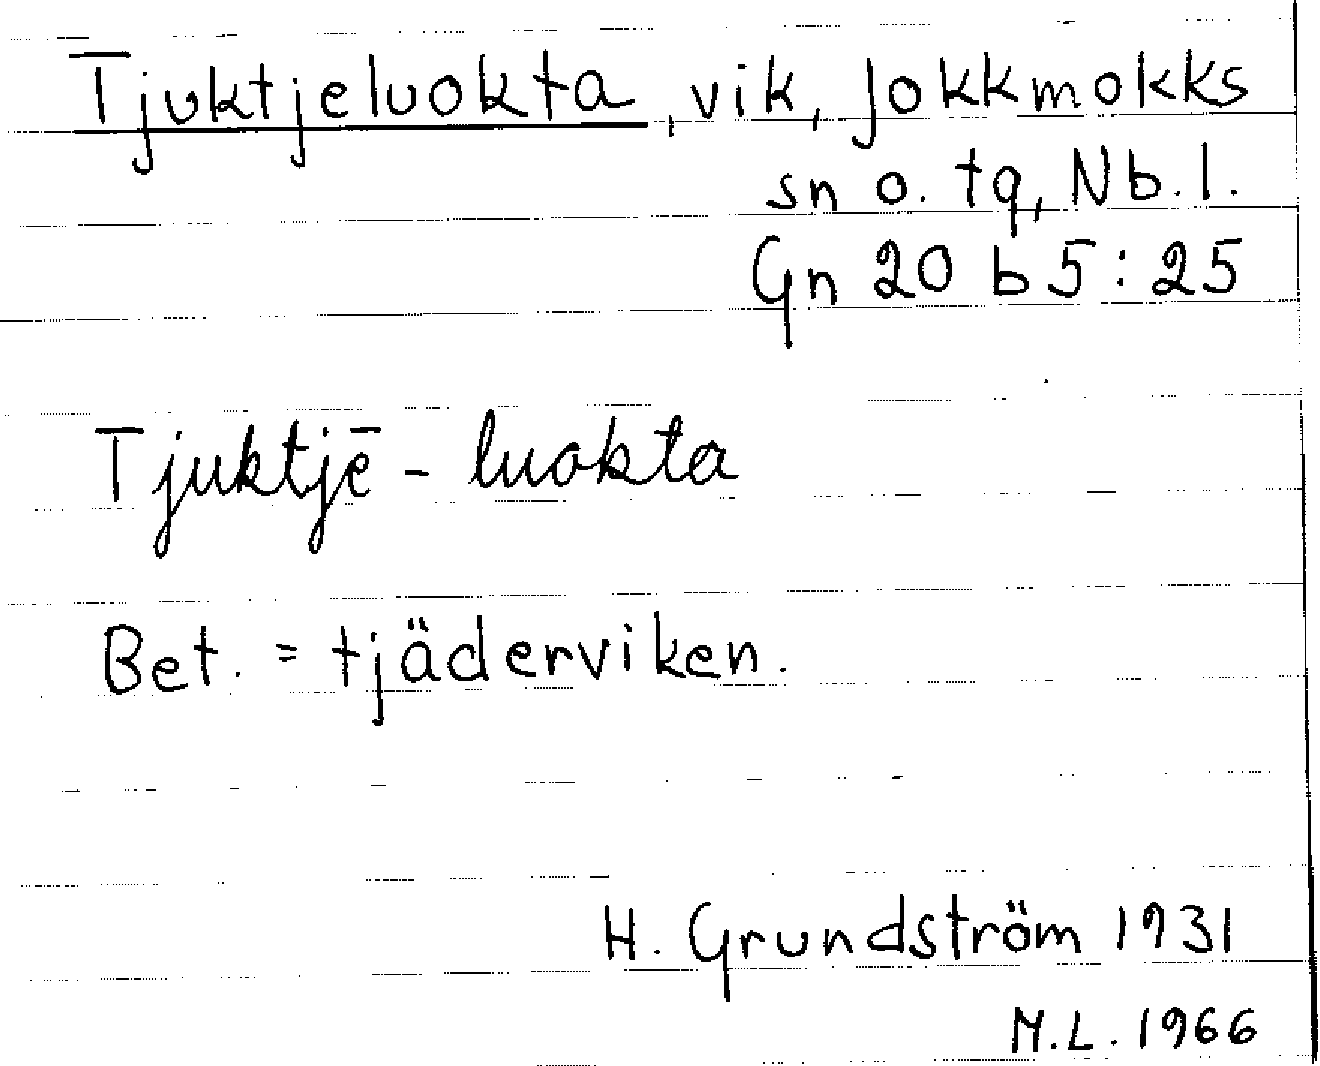 Tjuktjeluokta, vik, Jokkmokks
sn o. tg, Nb. l.
Gn 20 b 5 : 25
Tjuktjē - luokta
Bet. = tjäderviken.
H. Grundström 1931
M.L. 1966